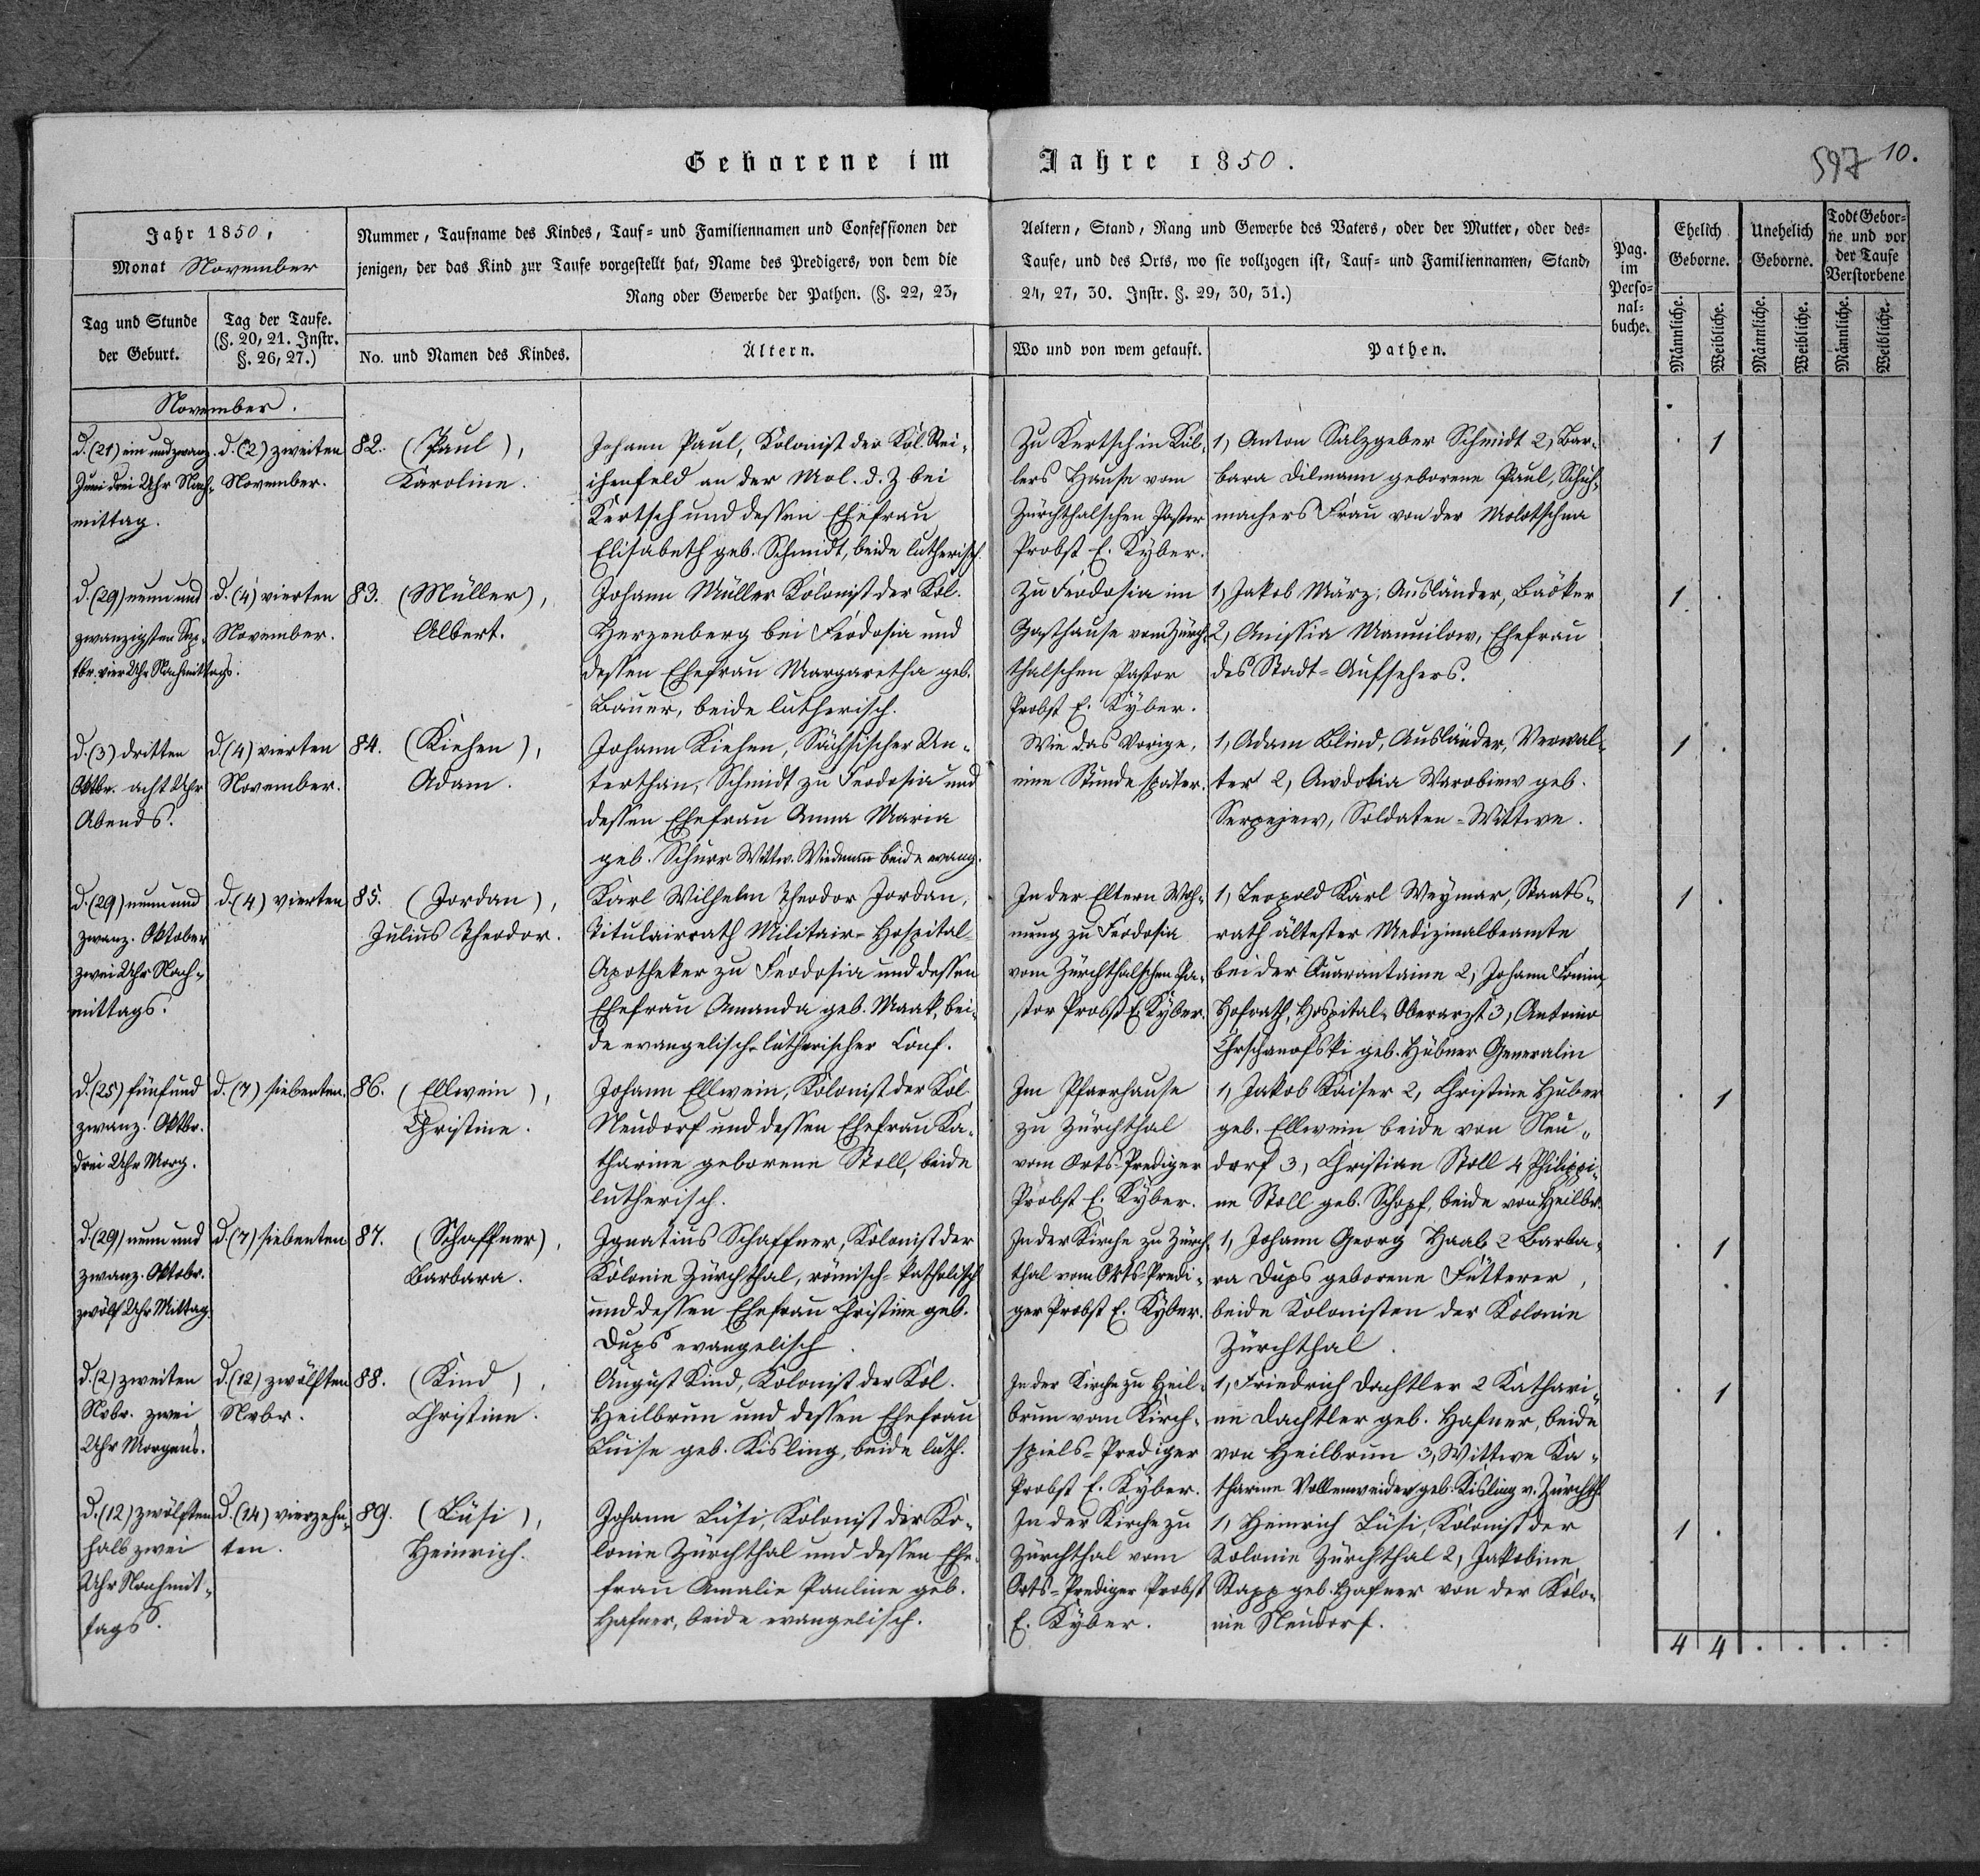 Geborene im Jahre 1850.
597 10.
Jahr 1850,
Monat November
Nummer, Taufname des Kindes, Tauf- und Familiennamen und Confessionen der
jenigen, der das Kind zur Taufe vorgestellt hat, Name des Predigers, von dem die
Rang oder Gewerbe der Pathen. (§. 22, 23,
Aeltern, Stand, Rang und Gewerbe des Vaters, oder der Mutter, oder des-
Taufe, und des Orts, wo sie vollzogen ist, Tauf- und Familiennamen, Stand,
24, 27, 30. Instr. §. 29, 30, 31.)
Pag.
im
Perso-
nal-
buche.
Ehelich
Geborne.
Unehelich
Geborne.
Todt Gebor-
ne und vor
der Taufe
Verstorbene
Tag und Stunde
der Geburt.
Tag der Taufe.
(§. 20, 21. Instr.
§. 26, 27.)
No. und Namen des Kindes.
Ältern.
Wo und von wem getauft.
Pathen.
Männliche.
Weibliche.
Männliche.
Weibliche.
Männliche.
Weibliche.
November.
d. (21) ein und zwanz.
Juni drei Uhr Nach-
mittag.
d. (2) zweiten
November.
82. (Paul),
Karoline.
Johann Paul, Kolonist der Kol. Rei-
chenfeld an der Mol. d. Z bei
Kertsch und dessen Ehefrau
Elisabeth geb. Schmidt, beide lutherisch.
Zu Kertsch in
lers Hause vom
Zürchthalschen Pastor
Probst E. Kyber.
1, Anton Salzgeber Schmidt 2, Bar-
bara Dilmann geborene Paul, Schuh-
machers Frau von der Molotschna
1
d. (29) neun und
zwanzigsten Sep-
tbr. vier Uhr Nachmittags.
d. (4) vierten
November.
83. (Müller),
Albert.
Johann Müller Kolonist der Kol.
Herzenberg bei Feodosia und
dessen Ehefrau Margaretha geb.
Bauer, beide lutherisch.
Zu Feodosia im
Gasthause vom Zürch-
thalschen Pastor
Probst E. Kyber.
1, Jakob März, Ausländer, Bäcker
2, Anissia Manuilow, Ehefrau
des Stadt-Aufsehers.
1
d. (3) dritten
Oktbr. acht Uhr
Abends.
d. (4) vierten
November.
84. (Kiehen),
Adam.
Johann Kiehen, Sächsischer Un-
terthan, Schmidt zu Feodosia und
dessen Ehefrau Anna Maria
geb. Schurr Wittw. Wiedmann beide evang.
Wie das Vorige,
eine Stunde später.
1, Adam Blind, Ausländer, Verwal-
ter 2, Awdotia Warobiew geb.
Sergejew, Soldaten-Wittwe.
1
d. (29) neun und
zwanz. Oktober
zwei Uhr Nach-
mittags.
d. (4) vierten
85. (Jordan),
Julius Theodor.
Karl Wilhelm Theodor Jordan,
Titulairrath Militair-Hospital-
Apotheker zu Feodosia und dessen
Ehefrau Amanda geb. Maak, bei-
de evangelisch-lutherischer Conf.
In der Eltern Woh-
nung zu Feodosia
vom Zürchthalschen Pa-
stor Probst E. Kyber.
1, Leopold Karl Weymar, Staats-
rath ältester Medizinalbeamte
bei der Quarantaine 2, Johann Fomin,
Hofrath, Hospital-Oberarzt 3, Antonie
geb. Hübner Generalin
1
d. (25) fünf und
zwanz. Oktbr.
drei Uhr Morg.
d. (7) siebenten.
86. (Ellwein),
Christine.
Johann Ellwein, Kolonist der Kol
Neudorf und dessen Ehefrau Ka-
tharine geborene Stoll, beide
lutherisch.
Im Pfarrhause
zu Zürchthal
vom Orts-Prediger
Probst E. Kyber.
1, Jakob Kaiser 2, Christine Huber
geb. Ellwein beide von Neu-
dorf 3, Christian Stoll 4 Philippi-
ne Stoll geb. Schopf, beide von Heilbr.
1
d. (29) neun und
zwanz. Oktobr.
zwölf Uhr Mittag.
d. (7) siebenten
87. (Schaffner),
Barbara.
Ignatius Schaffner, Kolonist der
Kolonie Zürchthal, römisch-katholisch
und dessen Ehefrau Christine geb.
Dups evangelisch.
In der Kirche zu Zürch-
thal vom Orts-Predi-
ger Probst E. Kyber.
1, Johann Georg Haab 2 Barba-
ra Dups geborene Fütterer,
beide Kolonisten der Kolonie
Zürchthal.
1
d. (2) zweiten
Nvbr. zwei
Uhr Morgens.
d. (12) zwölften
Nvbr.
88. (Kind),
Christine.
August Kind, Kolonist der Kol.
Heilbrun und dessen Ehefrau
Luise geb. Kisling, beide luth.
In der Kirche zu Heil-
brun vom Kirch-
spiels-Prediger
Probst E. Kyber.
1, Friedrich Dachtler 2 Kathari-
ne Dachtler geb. Hafner, beide
von Heilbrun 3, Wittwe Ka-
tharine Vollenweider geb. Kisling v. Zürchth.
1
d. (12) zwölften
halb zwei
Uhr Nachmit-
tags.
d. (14) vierzehn-
ten.
89. (Lüsi),
Heinrich.
Johann Lüsi, Kolonist der Ko-
lonie Zürchthal und dessen Ehe-
frau Amalie Pauline geb.
Hafner, beide evangelisch.
In der Kirche zu
Zürchthal vom
Orts-Prediger Probst
E. Kyber.
1, Heinrich Lüsi, Kolonist der
Kolonie Zürchthal 2, Jakobine
Stapp geb. Hafner von der Kolo-
nie Neudorf.
1
4 4